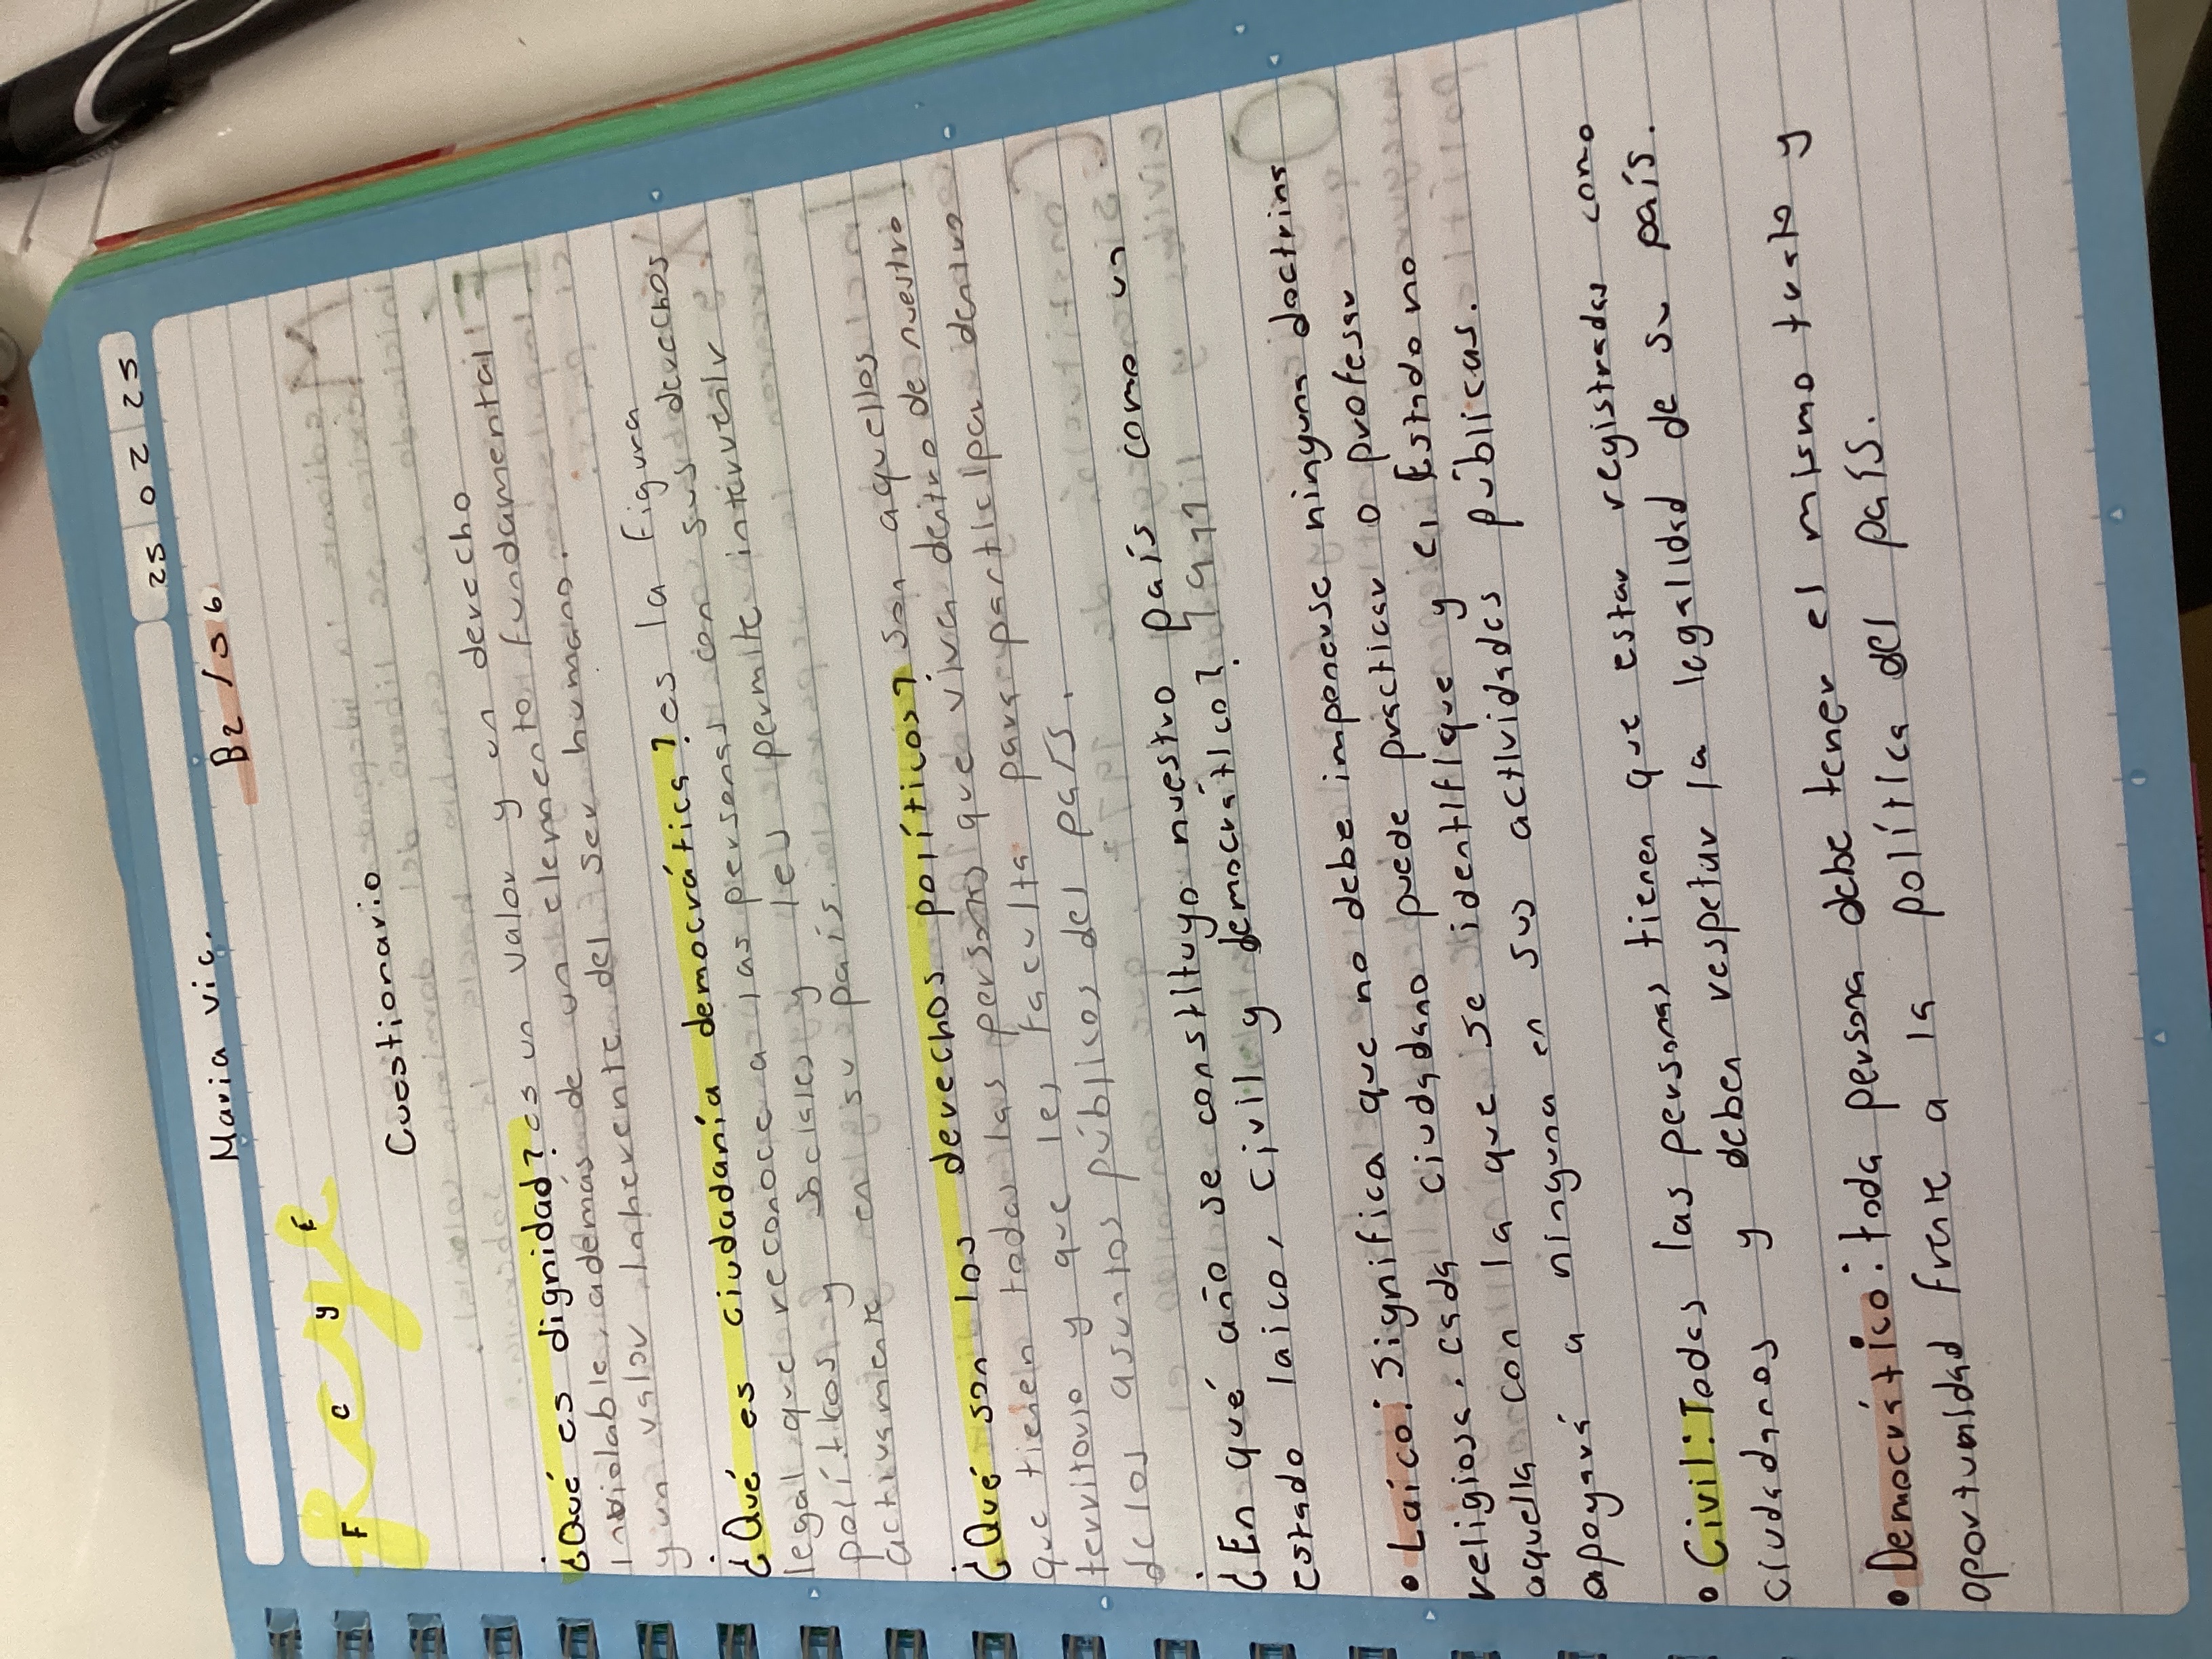 25 02 25
Maria vic.
B2/S6
F C y E
Cuestionario
¿Qué es dignidad? es un valor y un derecho
inviolable, además de un elemento fundamental
y un valor inherente del ser humano.
¿Qué es ciudadanía democrática? es la figura
legal que reconoce a las personas con sus derechos
políticos y sociales y les permite intervenir
activamente en su país.
¿Qué son los derechos políticos? son aquellos
que tienen todas las persons que viven dentro de nuestro
territorio y que les faculta para participar dentro
de los asuntos públicos del país.
¿En qué año se constituyo nuestro país como un
estado laico, civil y democrático?
• Laico: Significa que no debe imponerse ninguna doctrina
religiosa, cada ciudadano puede practicar o profesar
aquella con la que se identifique y el Estado no
apoyará a ninguna en sus actividades públicas.
• Civil: Todas las personas tienen que estar registradas como
ciudadanos y deben respetar la legalidad de su país.
• Democrático: toda persona debe tener el mismo trato y
oportunidad frente a la política del país.